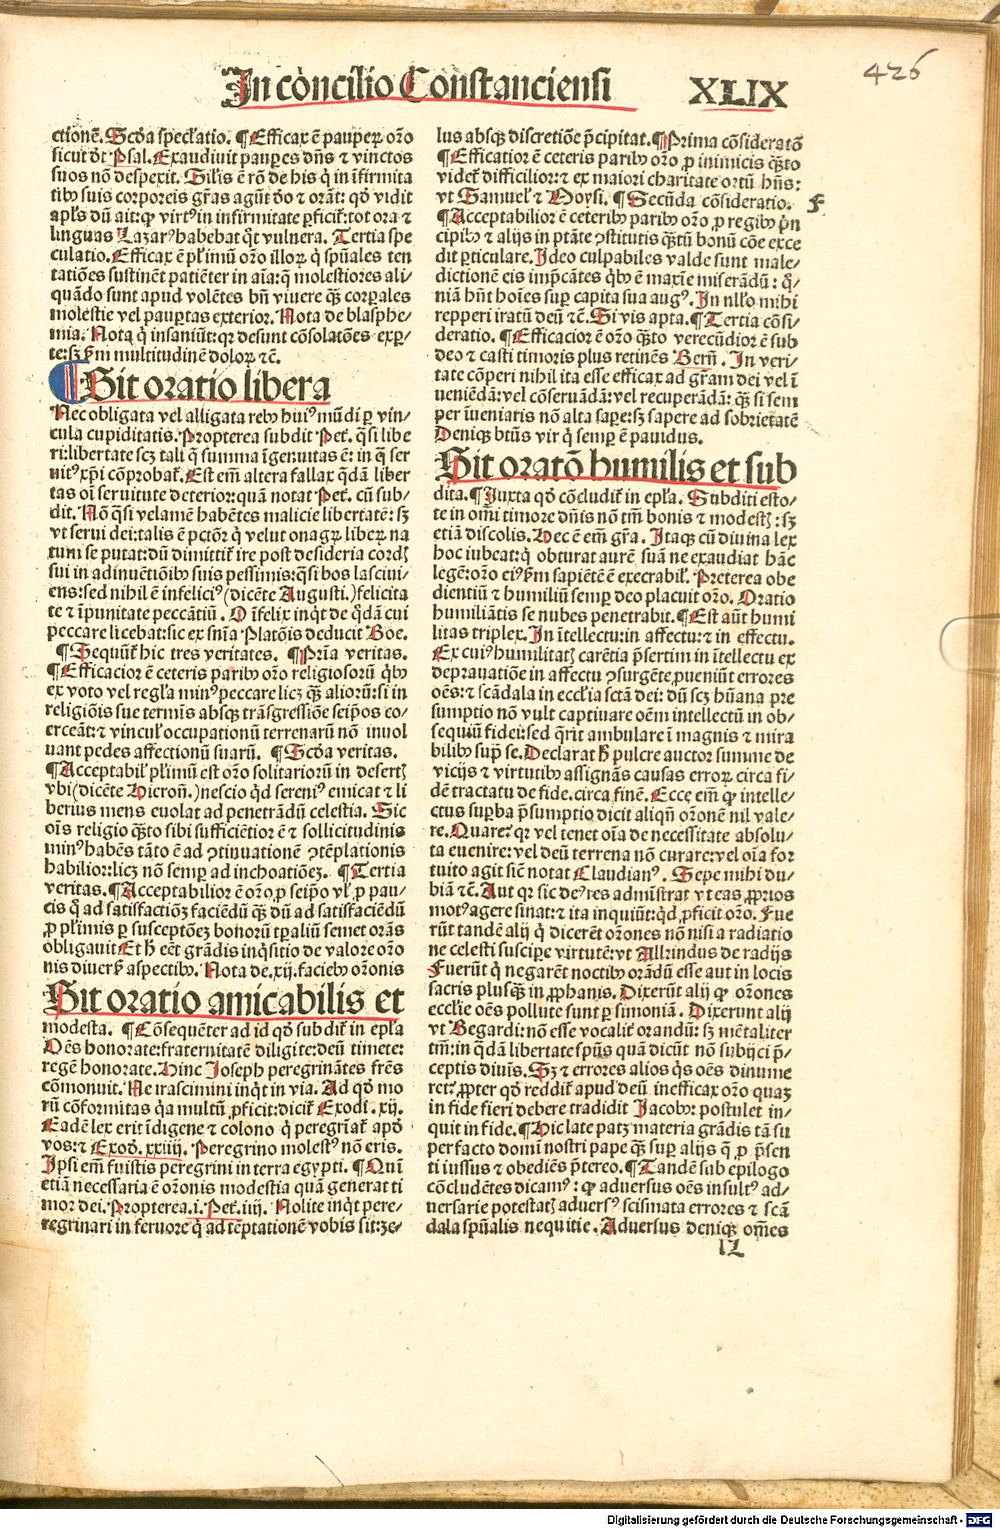 In concilio Constanciensi XLIX
426
ctionē. Scḋa specl'atio. ¶Efficax ē pauperꝝ orō
sicut dr̄ Psal. Exaudiuit pauꝑes dn̄s ⁊ vinctos
suos nō despexit. Silis ē rō de his q̇ in īfirmita
tibꝫ suis corporeis gr̄as agūt dō ⁊ orāt: qḋ vidit
apl's dū ait: ꝙ virtꝰ in infirmitate ꝑficit᷑: tot ora ⁊
linguas Lazarꝰ habebat qͦt vulnera. Tertia spe
culatio. Efficax ē pl'imū orō illoꝝ q̇ spūales ten
tatiōes sustinēt patiēter in aīa: q̄ molestiores ali-
quādo sunt apud volētes bn̄ viuere q̄ꝫ corꝑales
molestie vel pauꝑtas exterior. Nota de blasphe-
mia. Nota q̇ insaniūt: qꝛ desunt cōsolatōes exꝑ-
te: sꝫ ẜm multitudinē doloꝝ ⁊c̄.
¶Sit oratio libera
Nec obligata vel alligata rebꝫ huiꝰ mūdi ꝑ vin-
cula cupiditatis. Propterea subdit Pet᷑. q̄si libe
ri: libertate scꝫ tali q̄ summa īgenuitas ē: in q̄ ser
uitꝰ xp̄i cōprobat᷑. Est em̄ altera fallax q̄dā liber
tas oī seruitute deterior: quā notat Pet᷑. cū sub-
dit. Nō q̄si velamē habētes malicie libertatē: sꝫ
vt serui dei: talis ē pctōꝝ q̇ velut onagꝝ liberꝝ na
tum se putat: dū dimittit᷑ ire post desideria cordꝭ
sui in adinuētiōibꝫ suis pessimis: q̄si bos lasciui-
ens: sed nihil ē infeliciꝰ (dicēte Augusti.) felicita
te ⁊ īpunitate peccātiū. O īfelix inqͥt de q̄dā cui
peccare licebat: sic ex sn̄ia Platōis deducit Boe.
¶Sequūt᷑ hic tres veritates. ¶Pr̄ia veritas.
¶Efficacior ē ceteris paribꝫ orō religiosorū q̇bꝫ
ex voto vel regl'a minꝰ peccare licꝫ q̄ꝫ aliorū: si in
religiōis sue termīs absqꝫ trāsgressiōe seip̄os co-
erceāt: ⁊ vincul' occupationū terrenarū nō inuol
uant pedes affectionū suarū. ¶Scḋa veritas.
¶Acceptabil' pl'imū est orō solitariorū in desertꝭ
vbi (dicēte Hieron̄.) nescio qͥd sereniꝰ emicat ⁊ li
berius mens euolat ad penetrādū celestia. Sic
oīs religio q̄ꝫto sibi sufficiētior ē ⁊ sollicitudinis
minꝰ habēs tāto ē ad ꝯtinuationē ꝯtēplationis
habilior: licꝫ nō semꝑ ad inchoatiōeꝫ. ¶Tertia
veritas. ¶Acceptabilior ē orō, ꝓ seip̄o vl' ꝓ pau-
cis q̇ ad satisfactiōꝫ faciēdū q̄ꝫ dū ad satisfaciēdū
ꝓ pl'imis ꝑ susceptōeꝫ bonorū tꝑaliū semet orās
obligauit Et ħ eēt grādis inqͥsitio de valore orō
nis diuerẜ aspectibꝫ. Nota de. xij. faciebꝫ orōnis
Sit oratio amicabilis et
modesta. ¶Cōsequēter ad id qḋ subdit᷑ in epl'a
Oēs honorate: fraternitatē diligite: deū timete:
regē honorate. Hinc Joseph peregrinātes fr̄es
cōmonuit. Ne irascimini inqͥt in via. Ad qḋ mo
rū cōformitas q̇a multū ꝓficit: dicit᷑ Exodi. xij.
Eadē lex erit īdigene ⁊ colono q̇ peregrīat᷑ apḋ
vos: ⁊ Exoḋ. xxiiij. Peregrino molestꝰ nō eris.
Ipsi em̄ fuistis peregrini in terra egypti. ¶Quī
etiā necessaria ē orōnis modestia quā generat ti
mor dei. Propterea. i. Pet᷑. iiij. Nolite inqͥt pere-
regrinari in feruore q̇ ad tēptationē vobis sit: ze-
lus absqꝫ discretiōe p̄cipitat. ¶Prima cōsideratō
¶Efficatior ē ceteris paribꝫ orō ꝓ inimicis q̄ꝫto
videt᷑ difficilior: ⁊ ex maiori charitate ortū hn̄s:
vt Samuel' ⁊ Moysi. ¶Secūda cōsideratio.
F
¶Acceptabilior ē ceteribꝫ paribꝫ orō ꝓ regibꝫ p̄n
cipibꝫ ⁊ alijs in ptāte ꝯstitutis q̄ꝫtū bonū cōe exce
dit ꝑticulare. Ideo culpabiles valde sunt male-
dictionē eis imp̄cātes q̇bꝫ ē maxīe miserādū: q̇-
niā hn̄t hoīes suꝑ capita sua augꝰ. In nll'o mihi
repperi iratū deū ⁊c̄. Si vis apta. ¶Tertia cōsi-
deratio. ¶Efficacior ē orō q̄ꝫto verecūdior ē sub
deo ⁊ casti timoris plus retinēs Bern̄. In veri-
tate cōperi nihil ita esse efficax ad gr̄am dei vel ī
ueniēdā: vel cōseruādā: vel recuperādā: q̄ꝫ si sem
per īueniatis nō alta saꝑe: sꝫ sapere ad sobrietatē
Deniqꝫ btūs vir q̇ semꝑ ē pauidus.
Sit oratō humilis et sub
dita. ¶Iuxta qḋ cōcludit᷑ in epl'a. Subditi esto-
te in om̄i timore dn̄is nō tm̄ bonis ⁊ modestꝭ: sꝫ
etiā discolis. Hec ē em̄ gr̄a. Itaqꝫ cū diuina lex
hoc iubeat: q̇ obturat aurē suā ne exaudiat hāc
legē: orō eiꝰ ẜm sapiētē ē execrabil'. Preterea obe
dientiū ⁊ humiliū semꝑ deo placuit orō. Oratio
humiliātis se nubes penetrabit. ¶Est aūt humi
litas triplex. In ītellectu: in affectu: ⁊ in effectu.
Ex cuiꝰ humilitatꝭ carētia p̄sertim in ītellectu ex
deprauatiōe in affectu ꝯsurgēte ꝓueniūt errores
oēs: ⁊ scādala in eccl'ia sctā dei: dū scꝫ hūana pre
sumptio nō vult captiuare oēm intellectū in ob-
sequiū fidei: sed q̄rit ambulare ī magnis ⁊ mira
bilibꝫ suꝑ se. Declarat ħ pulcre auctor summe de
vicijs ⁊ virtutibꝫ assignās causas erroꝝ circa fi-
dē tractatu de fide. circa finē. Ecce em̄ ꝙ intelle-
ctus suꝑba p̄sumptio dicit aliqn̄ orōnē nil vale-
re. Quare? qꝛ vel tenet oīa de necessitate absolu-
ta euenire: vel deū terrena nō curare: vel oīa for
tuito agit siē notat Claudianꝰ. Sepe mihi du-
biā ⁊c̄. Aut qꝛ sic deꝰ res admīstrat vt eas ꝓprios
motꝰ agere sinat: ⁊ ita inquiūt: qͥd ꝓficit orō. Fue
rūt tandē alij q̇ dicerēt orōnes nō nisi a radiatio
ne celesti susciꝑe virtutē: vt Allrindus de radijs
Fuerūt q̇ negarēt noctibꝫ orādū esse aut in locis
sacris plusq̄ꝫ in ꝓphanis. Dixerūt alij ꝙ orōnes
eccl'ie oēs pollute sunt ꝑ simoniā. Dixerunt alij
vt Begardi: nō esse vocalit᷑ orandū: sꝫ mētaliter
tm̄: in q̄dā libertate spūs quā dicūt nō subijci p̄-
ceptis diuīs. Sꝫ ⁊ errores alios q̄s oēs dinume
ret? ꝓpter qḋ reddit᷑ apud deū inefficax orō quaꝫ
in fide fieri debere tradidit Jacobꝰ: postulet in-
quit in fide. ¶Hic late patꝫ materia grādis tā su
per facto domī nostri pape q̄ꝫ suꝑ alijs q̄ ꝓ p̄sen
ti iussus ⁊ obediēs p̄tereo. ¶Tandē sub epilogo
cōcludētes dicamꝰ: ꝙ aduersus oēs insultꝰ ad-
uersarie potestatꝭ aduersꝰ scismata errores ⁊ scā
dala spūalis nequitie. Aduersus deniqꝫ om̄es